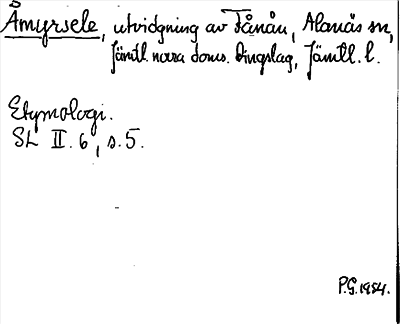 Åmyrsele, utvidgning av Tånån, Alanäs sn,
Jämtl. norra doms. tingslag, Jämtl. l.
Etymologi.
SL II. 6, s. 5.
P.G. 1954.